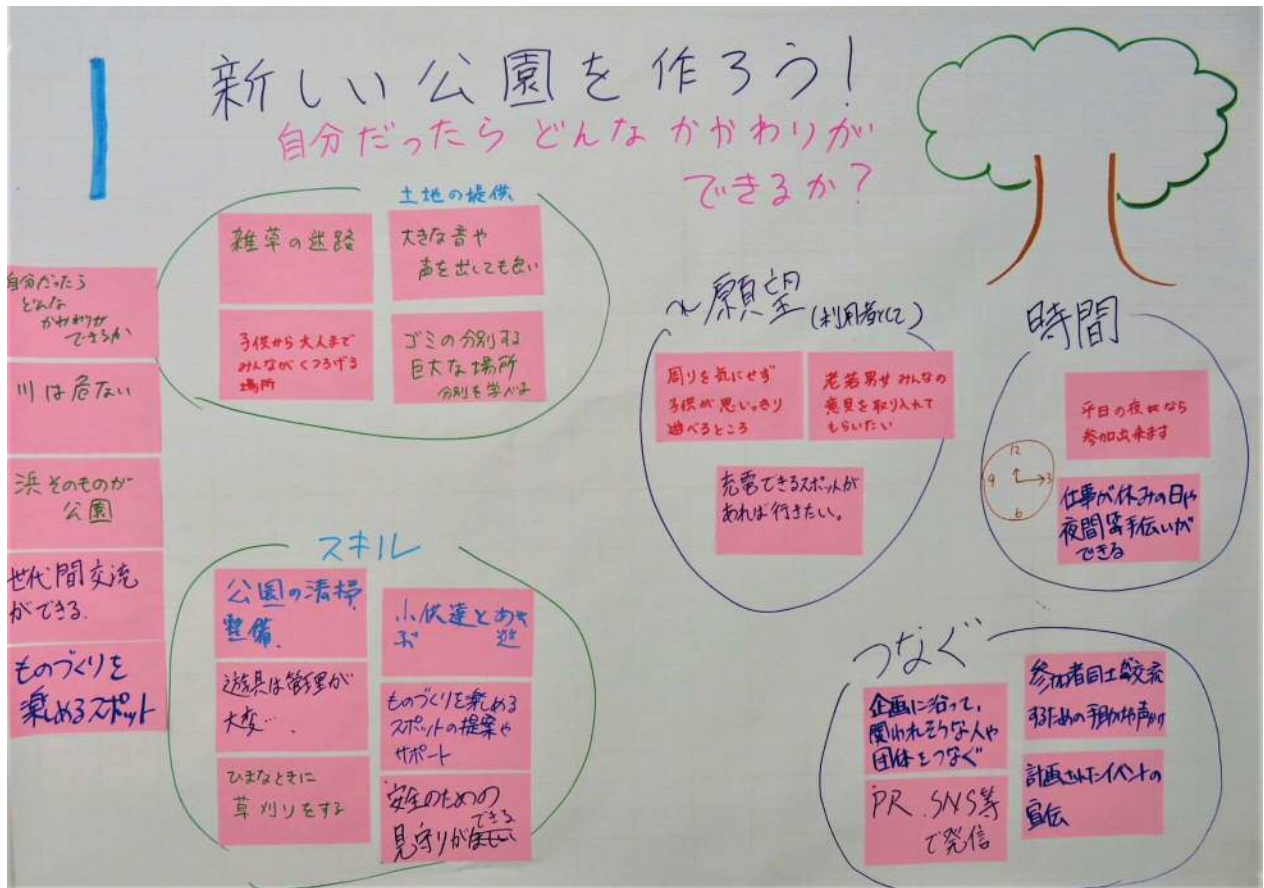 1
新しい公園を作ろう!
自分だったら どんな かかわりが
できるか?
自分だったら
どんな
かかわりが
できるか
川は危ない
浜そのものが
公園
世代間交流
ができる.
ものづくりを
楽しめるスポット
土地の提供
雑草の迷路
大きな音や
声を出しても良い
子供から大人まで
みんながくつろげる
場所
ゴミの分別する
巨大な場所
分別を学べる
スキル
公園の清掃
整備.
小供達と あそ
ぶ 遊
遊具は管理が
大変…
ものづくりを楽しめる
スポットの提案や
サポート
ひまなときに
草刈りをする
安全のための
見守りが
できる
~願望(利用者として)
周りを気にせず
子供が思いっきり
遊べるところ
老若男女みんなの
意見を取り入れて
もらいたい
充電できるスポットが
あれば行きたい。
時間
平日の夜なら
参加出来ます
12
9
3
6
仕事が休みの日や
夜間等手伝いが
できる
つなぐ
企画に沿って、
関われそうな人や
団体をつなぐ
参加者同士が交流
するための
声かけ
PR.SNS等
で発信
計画されたイベントの
宣伝